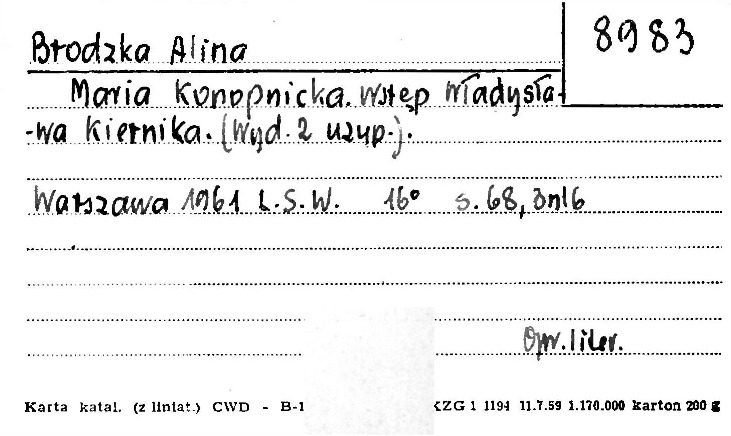 8983
Brodzka Alina
Maria Konopnicka. Wstęp Władysła-
-wa Kiernika. (Wyd. 2 uzup.).
Warszawa 1961 L.S.W. 16° s. 68, 3nlb
Opr. liter.
Karta katal. (z liniat.) CWD - B-1 KZG 1 1194 11.7.59 1.170.000 karton 200 g